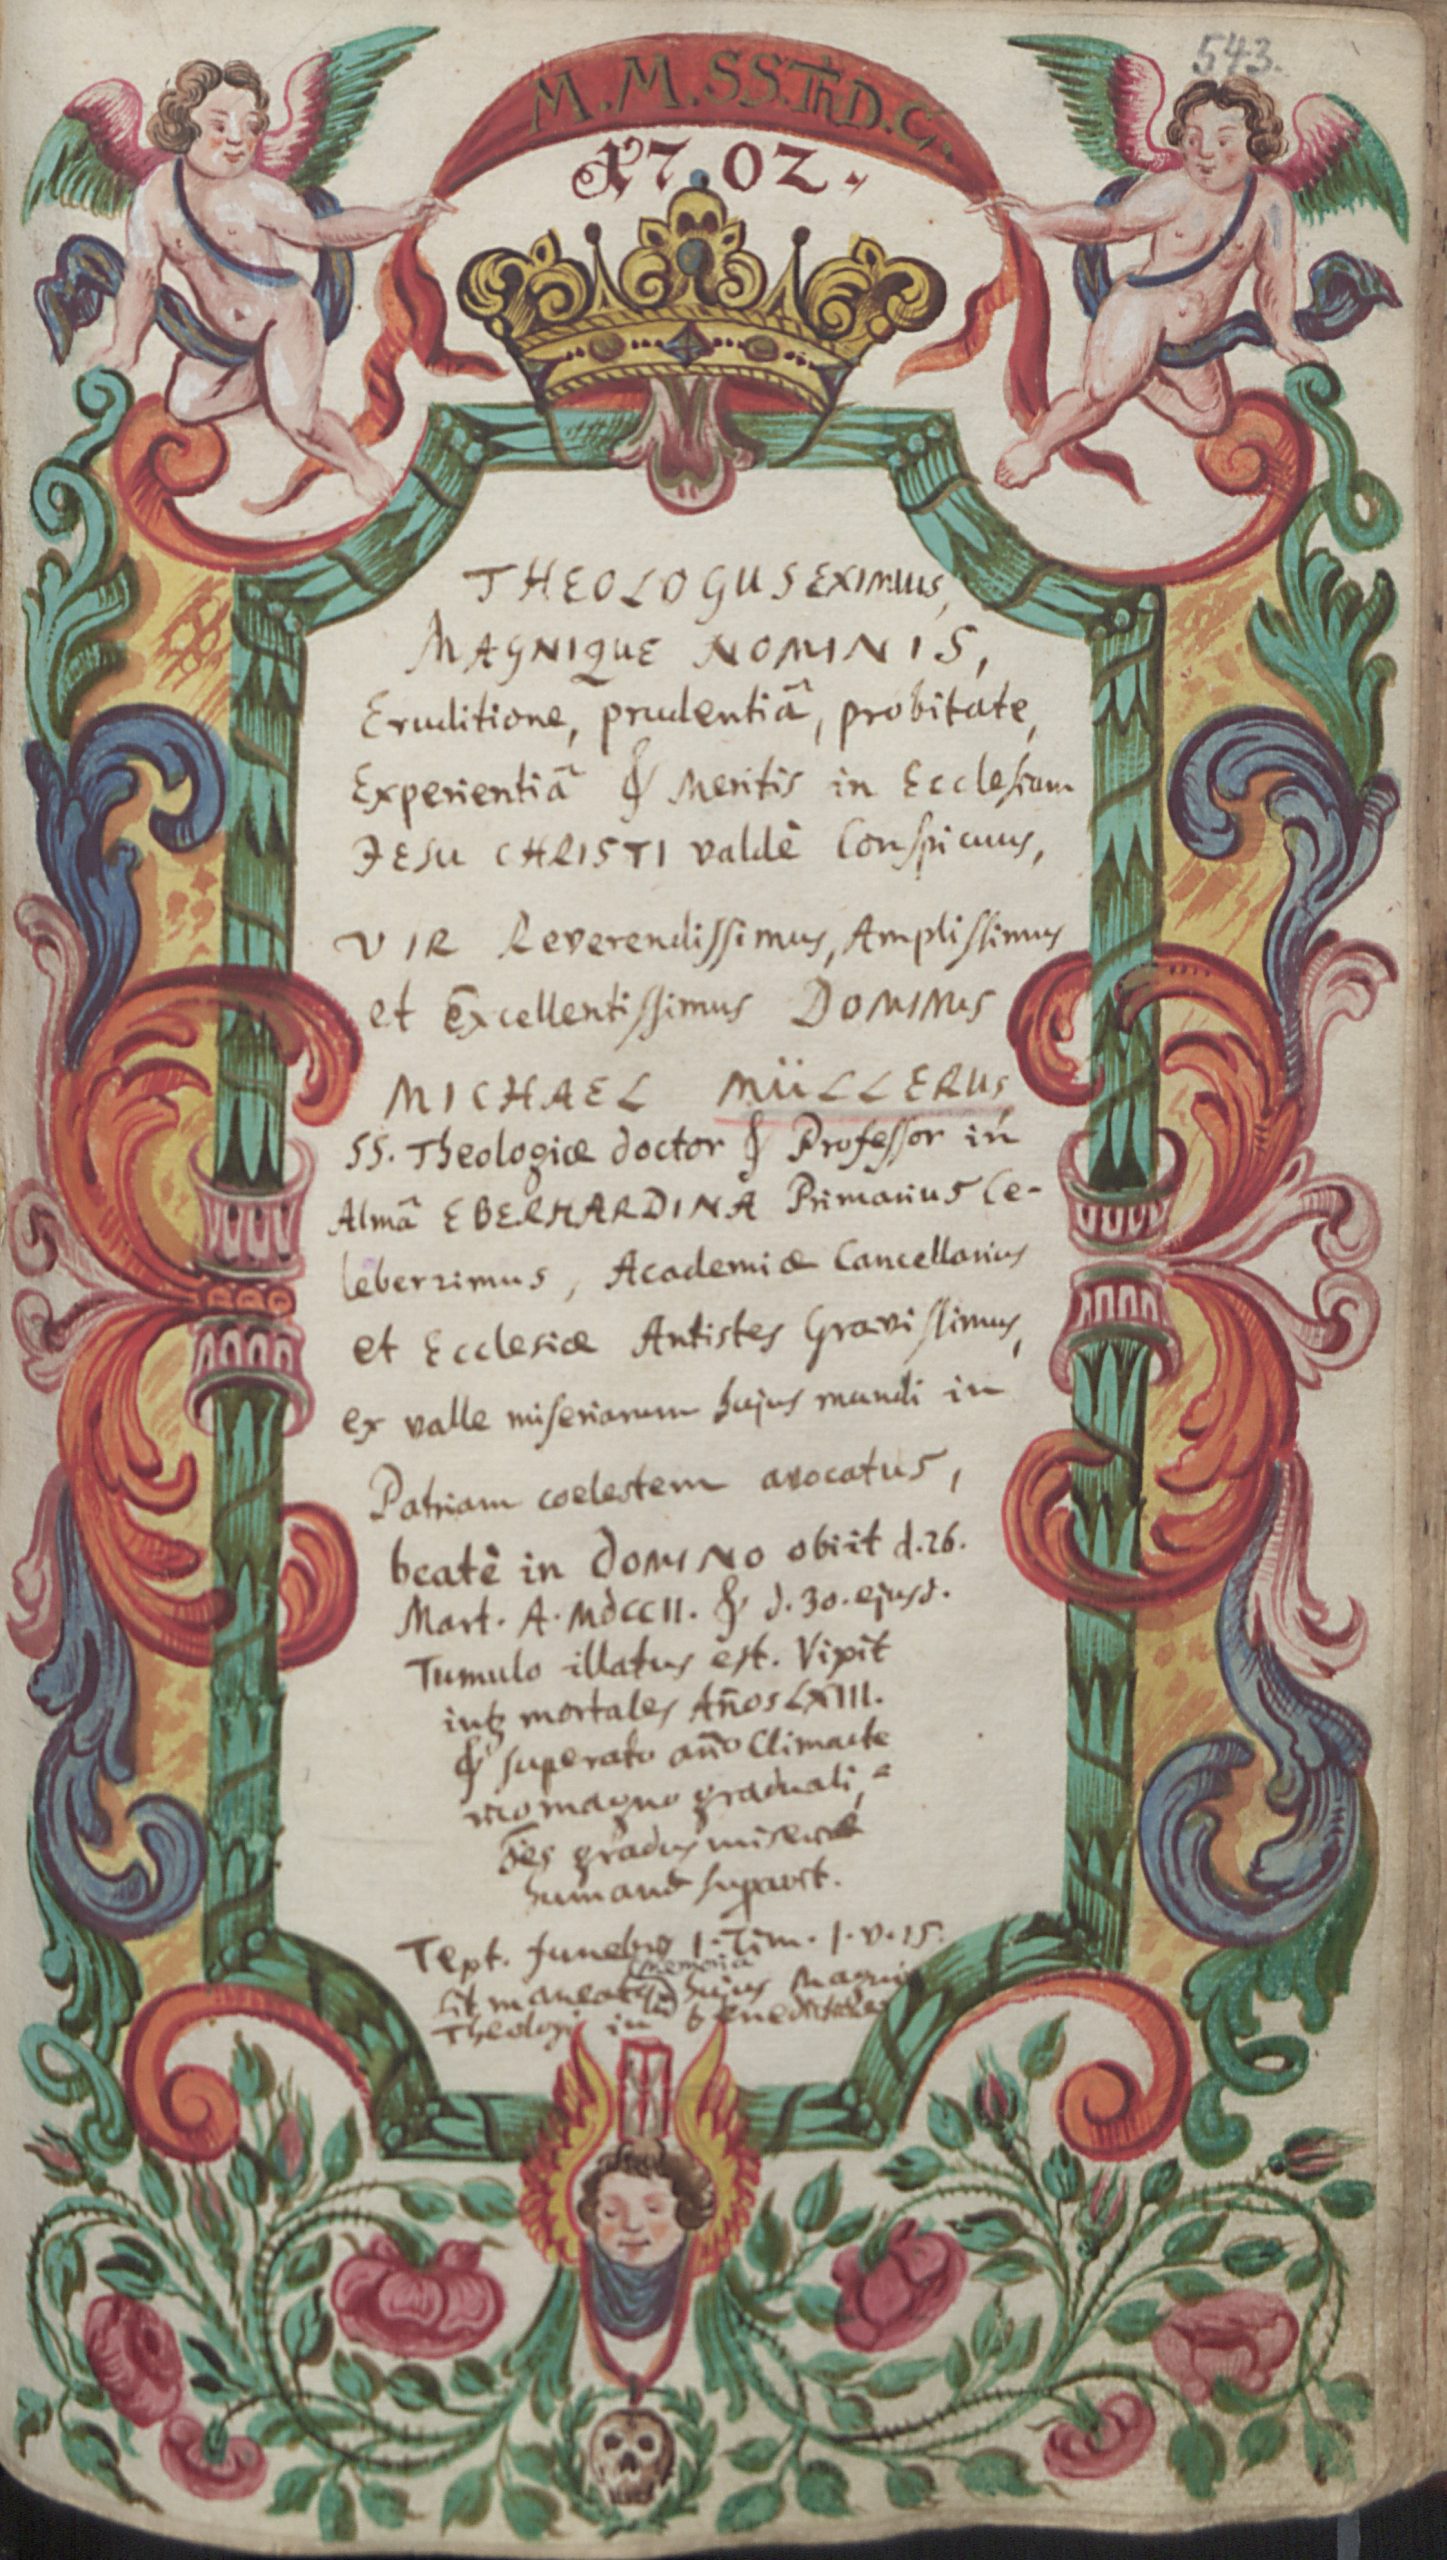 543.
M. M. SS. Th D. C.
1702.
THEOLOGUS EXIMIUS,
MAGNIQUE NOMINIS,
Eruditione, prudentiâ, probitate,
Experientiâ & Meritis in Ecclesiam
JESU CHRISTI valdè Conspicuus,
VIR Reverendissimus, Amplissimus
et Excellentissimus DOMINus
MICHAEL MÜLLERUS,
SS. Theologiæ doctor & Professor in
Almâ EBERHARDINA Primarius Ce-
leberrimus, Academiæ Cancellarius
et Ecclesiæ Antistes Gravissimus,
ex valle miseriarum hujus mundi in
Patriam coelestem avocatus,
beatè in DOMINO obiit d. 26.
Mart. A. MDCCII. & d. 30. ejusd.
Tumulo illatus est. Vixit
int mortales Años LXIII.
& superato año Climacte
rico magno graduali,
ões gradus miseriæ
humanæ
Text. funebris 1. Tim. 1. v. 15.
Sit maneatq memoria hujus Magni
Theologi in benedictione